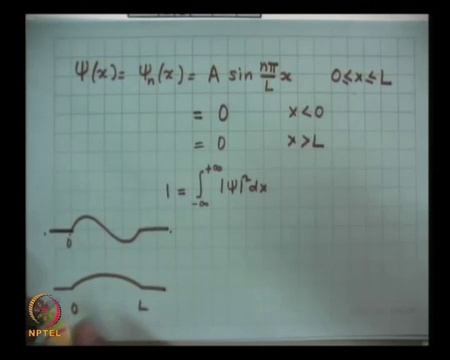 Ψ(x) = Ψn(x) = A sin nπ/L x 0≤x≤L
= 0 x<0
= 0 x>L
1 = ∫_{-∞}^{+∞} |Ψ|² dx
0
0 L
NPTEL